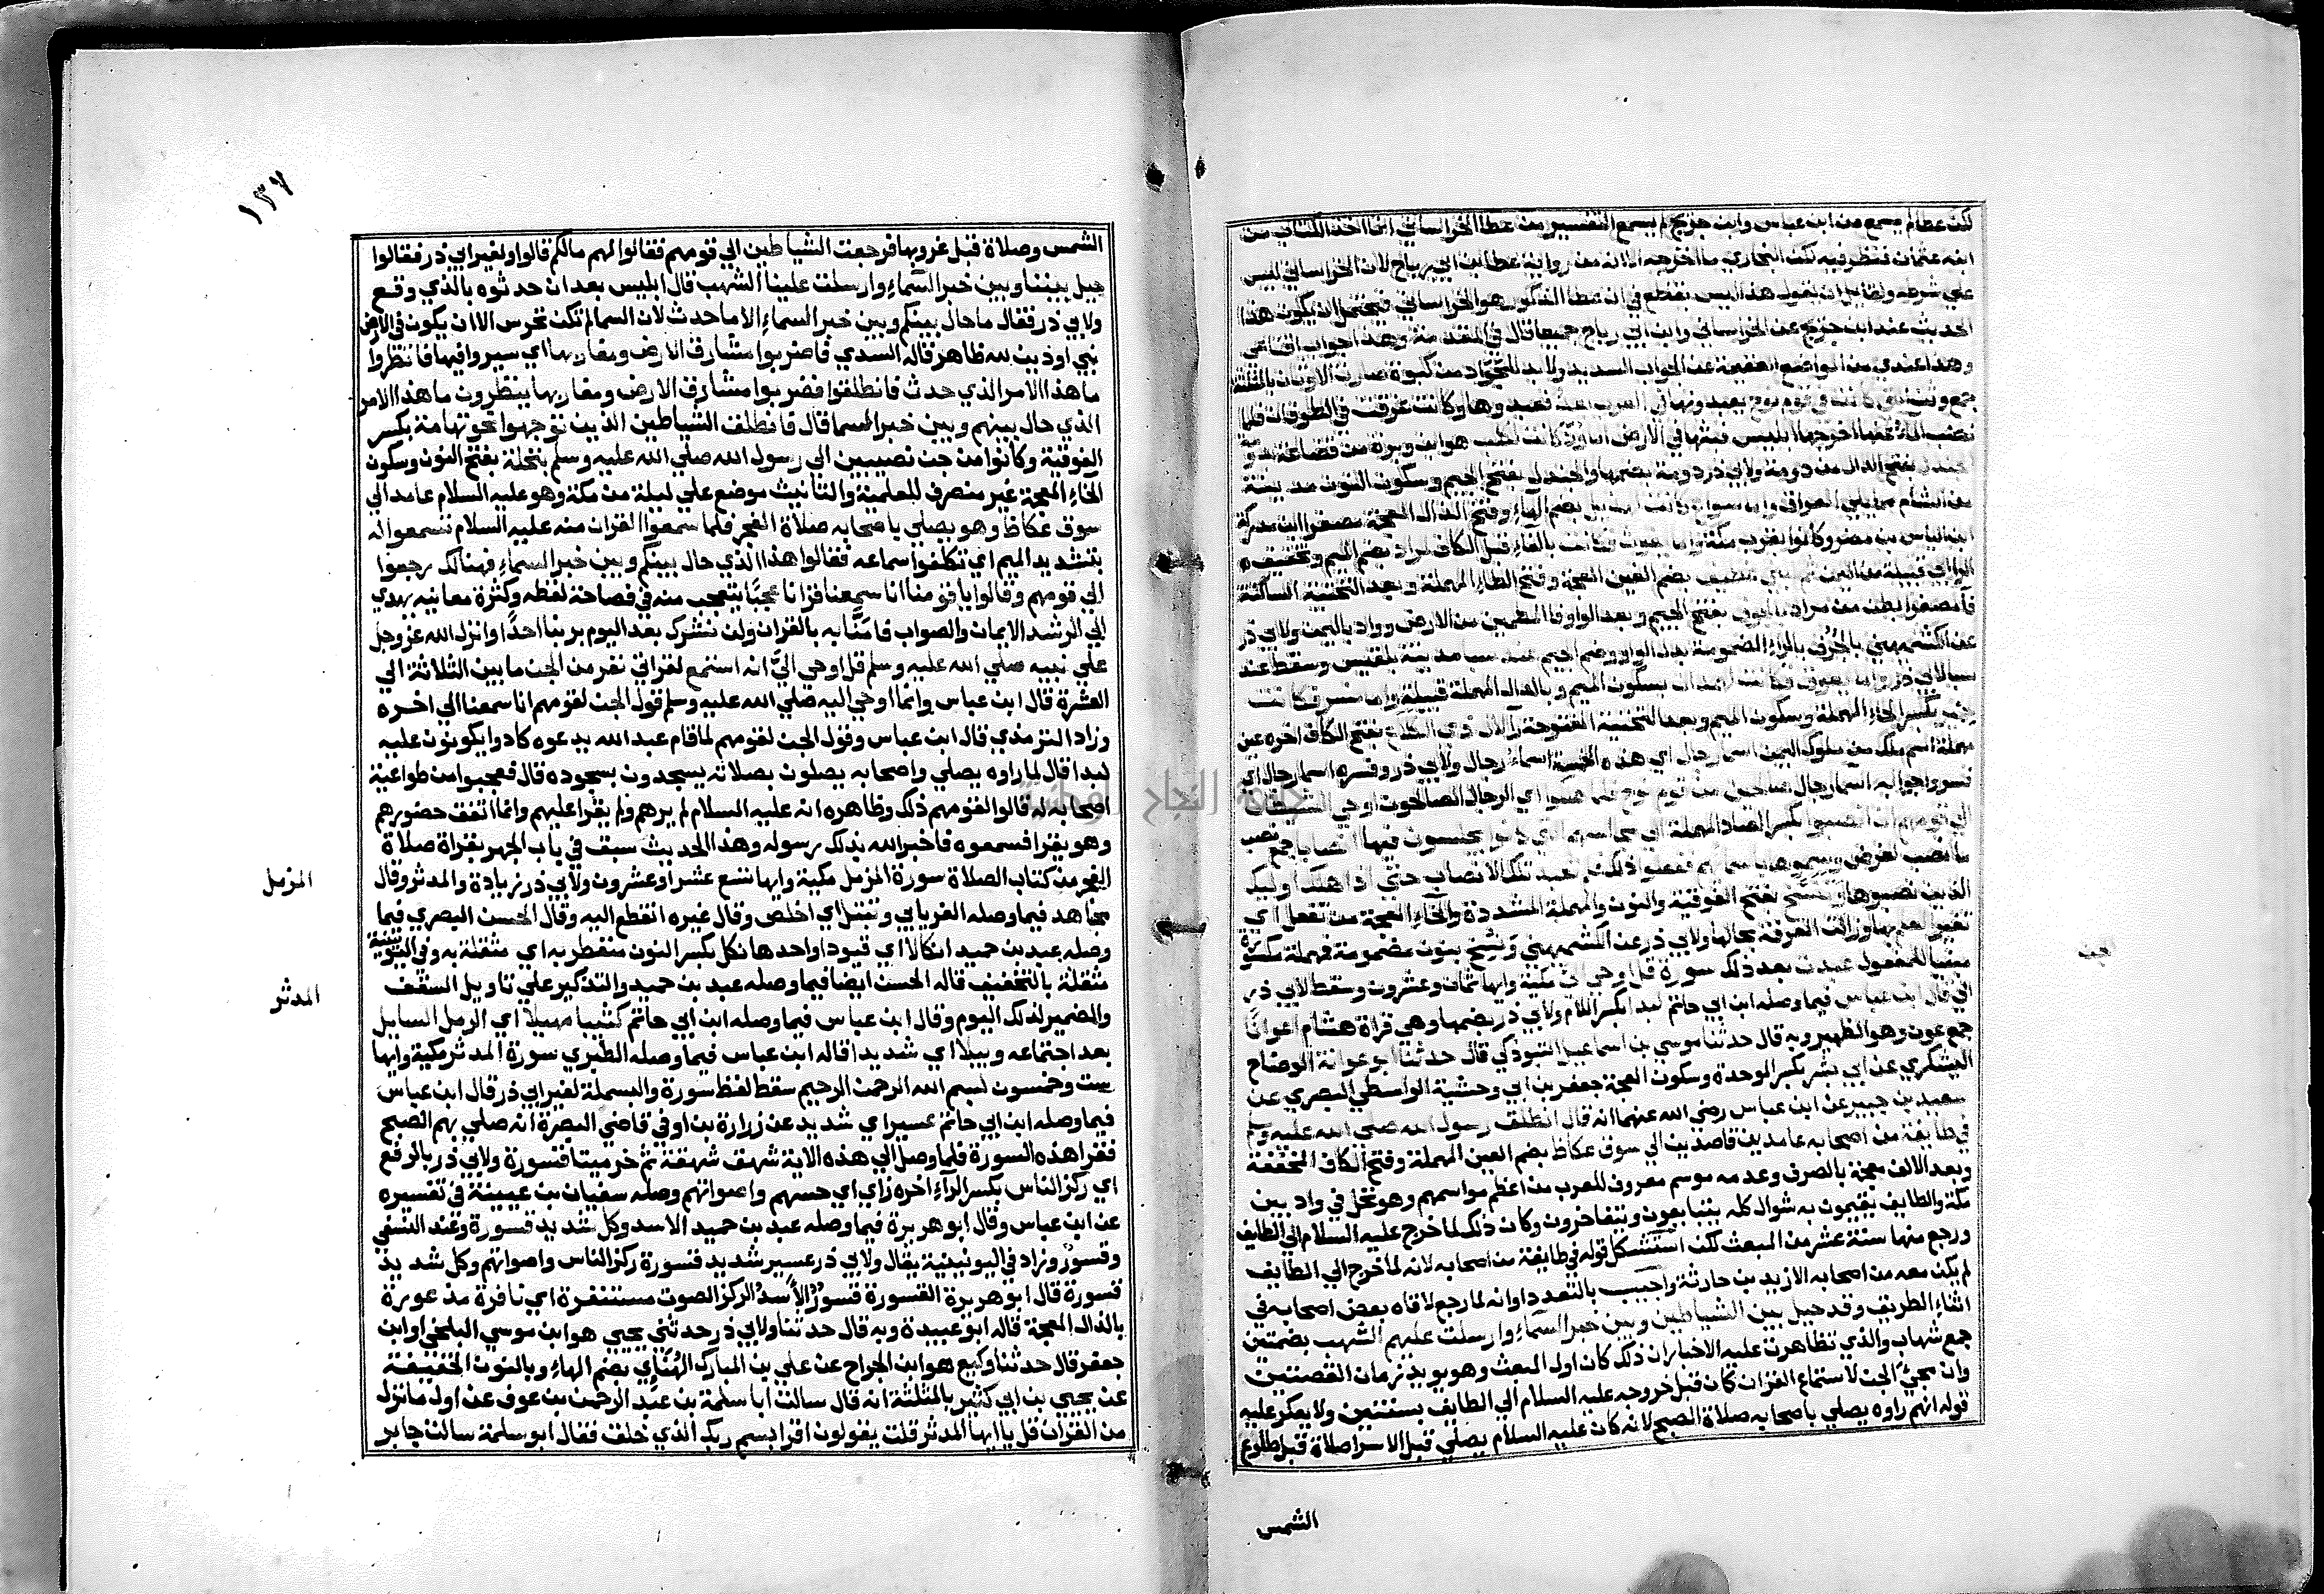 لكن عطا لم يسمع من ابن عباس وابن جريج لم يسمع التفسير من عطا الخراساني انما اخذ الكتاب من
ابنه عثمان فنظر فيه لكن البخاري ما اخرجه الا انه من رواية عطا بن ابي رباح لان الخراساني ليس
علي شرطه ولقايل ان يقول هذا ليس بقاطع في ان عطا المذكور هو الخراساني فيحتمل ان يكون هذا
الحديث عند ابن جريج عن الخراساني وابن ابي رباح جميعا قال في المقدمة وهذا جواب اقناعي
وهذا عندي من المواضع العقيمة عن الجواب السديد ولا بد للجواد من كبوة صارت الاوثان بالمثلثة
جمع وثن التي كانت في قوم نوح يعبدونها في العرب بعد فعبدوها وكانت غرقت في الطوفان فلما
نضب الماء عنها اخرجها ابليس فبثها في الارض اما ود كانت لكلب هو ابن وبرة من قضاعة بدومة
الجندل بفتح الدال من دومة ولابي ذر دومة بضمها والجندل بفتح الجيم وسكون النون مدينة
من الشام مما يلي العراق واما سواع كانت لهذيل بضم الهاء وفتح الذال المعجمة مصغرا ابن مدركة
ابن الياس بن مضر وكانوا بقرب مكة واما يغوث فكانت بالفاء قبل الكاف لمراد بضم الميم وتخفيف
الراء ابي قبيلة من اليمن ثم لبني غطيف بضم الغين المعجمة وفتح الطاء المهملة وبعد التحتية الساكنة
فاء مصغرا بطن من مراد بالجوف بفتح الجيم وبعد الواو فا المطمين من الارض وواد باليمن ولابي ذر
عن الكشميهني بالجُرُف بالراء المضمومة بدل الواو وضم الجيم عند سبا مدينة بلقيس وسقط عند
سبا لابي ذر واما يعوق فكانت لهمدان بسكون الميم وبالدال المهملة قبيلة واما نسر فكانت
لحمير بكسر الحاء المهملة وسكون الميم وبعد التحتية المفتوحة رآ لآل ذي الكلاع بفتح الكاف اخره عين
مهملة اسم ملك من ملوك اليمن اسما رجال اي هذه الخمسة اسماءُ رجال ولابي ذر ونسرا اسما رجال اي
نسر واخواته اسما رجال صالحين من قوم نوح فلما هلكوا اي الرجال الصالحون اوحي الشيطان
الي قومهم ان انصبوا بكسر الصاد المهملة الي مجالسهم التي كانوا يجلسون فيها انصابا جمع نصب
ما نصب لغرض وسموها باسمائهم ففعلوا ذلك فلم تعبد تلك الانصاب حتي اذا هلك اوليك
الذين نصبوها وتنسّخ بفتح الفوقية والنون والمهملة المشددة والخاء المعجمة من تفعل اي
تغير العلم بها وزالت المعرفة بحالها ولابي ذر عن الكشميهني وَنُسِخ بنون مضمومة فمهملة مكسورة
مبنيا للمفعول عبدت بعد ذلك سورة قل اوحي الي مكية وايها ثمان وعشرون وسقط لابي ذر
الي قال ابن عباس فيما وصله ابن ابي حاتم لبدا بكسر اللام ولابي ذر بضمها وهي قراة هشام اعوانًا
جمع عون وهو الظهير وبه قال حدثنا موسي بن اسماعيل التبوذكي قال حدثنا ابو عوانة الوضاح
اليشكري عن ابي بشر بكسر الموحدة وسكون المعجمة جعفر بن ابي وحشية الواسطي البصري عن
سعيد بن جبير عن ابن عباس رضي الله عنهما انه قال انطلق رسول الله صلي الله عليه وسلم
في طايفة من اصحابه عامدين قاصدين الي سوق عكاظ بضم العين المهملة وفتح الكاف المخففة
وبعد الالف معجمة بالصرف وعدمه موسم معروف للعرب من اعظم مواسمهم وهو نخل في واد بين
مكة والطايف يقيمون به شوال كله يتبايعون ويتفاخرون وكان ذلك لما خرج عليه السلام الي الطايف
ورجع منها سنة عشر من المبعث لكن استشكل قوله في طايفة من اصحابه لانه لما خرج الي الطايف
لم يكن معه من اصحابه الا زيد بن حارثة واجيب بالتعدد او انه لما رجع لاقاه بعض اصحابه في
اثناء الطريق وقد حيل بين الشياطين وبين خبر السماء وارسلت عليهم الشهب بضمتين
جمع شهاب والذي تظاهرت عليه الاخبار ان ذلك كان اول المبعث وهو يويد تزمان القصتين
وان مجيئ الجن لاستماع القران كان قبل خروجه عليه السلام الي الطايف بسنتين ولا يعكر عليه
قوله انهم راوه يصلي باصحابه صلاة الصبح لانه كان عليه السلام يصلي قبل الاسرا صلاة قبل طلوع
الشمس
١٣٧
الشمس وصلاة قبل غروبها فرجعت الشياطين الي قومهم فقالوا لهم مالكم قالوا ولغير ابي ذر فقالوا
حيل بيننا وبين خبر السماء وارسلت علينا الشهب قال ابليس بعد ان حدثوه بالذي وقع
ولابي ذر فقال ما حال بينكم وبين خبر السماء الا ما حدث لان السما لم تكن تحرس الا ان يكون في الارض
نبي او دين لله ظاهر قاله السدي فاضربوا مشارق الارض ومغاربها اي سيروا فيها فانظروا
ما هذا الامر الذي حدث فانطلقوا فضربوا مشارق الارض ومغاربها ينظرون ما هذا الامر
الذي حال بينهم وبين خبر السما قال فانطلق الشياطين الذين توجهوا نحو تهامة بكسر
الفوقية وكانوا من جن نصيبين الي رسول الله صلي الله عليه وسلم بنخلة بفتح النون وسكون
الخاء المعجمة غير منصرف للعلمية والتانيث موضع علي ليلة من مكة وهو عليه السلام عامد الي
سوق عكاظ وهو يصلي باصحابه صلاة الفجر فلما سمعوا القران منه عليه السلام تسمعوا له
بتشديد الميم اي تكلفوا سماعه فقالوا هذا الذي حال بينكم وبين خبر السماء فهنالك رجعوا
الي قومهم وقالوا يا قومنا انا سمعنا قرانا عجبًا يتعجب منه في فصاحة لفظه وكثرة معانيه يهدي
الي الرشد الايمان والصواب فامنَّا به بالقران ولن نشرك بعد اليوم بربنا احدًا وانزل الله عز وجل
علي نبيه صلي الله عليه وسلم قل اوحي اليَّ انه استمع لقراتي نفر من الجن ما بين الثلاثة الي
العشرة قال ابن عباس وانما اوحي اليه صلي الله عليه وسلم قول الجن لقومهم انا سمعنا الي اخره
وزاد الترمذي قال ابن عباس وقول الجن لقومهم لما قام عبد الله يدعوه كادوا يكونون عليه
لبدا قال لما راوه يصلي واصحابه يصلون بصلاته يسجدون بسجوده قال فعجبوا من طواعية
اصحابه له قالوا لقومهم ذلك وظاهره انه عليه السلام لم يرهم ولم يقرا عليهم وانما اتفق حضورهم
وهو يقرا فسمعوه فاخبر الله بذلك رسوله وهذا الحديث سبق في باب الجهر بقراة صلاة
الفجر من كتاب الصلاة سورة المزمل مكية وايها تسع عشر او عشرون ولابي ذر زيادة والمدثر وقال
المزمل
مجاهد فيما وصله الفريابي وتبتل اي اخلص وقال غيره انقطع اليه وقال الحسن البصري فيما
وصله عبد بن حميد انكالا اي قيودا واحدها نكل بكسر النون منفطر به اي مثقلة به وفي اليونينية
مثقلة بالتخفيف قاله الحسن ايضا فيما وصله عبد بن حميد والتذكير علي تاويل السقف
المدثر
والضمير لذلك اليوم وقال ابن عباس فيما وصله ابن ابي حاتم كثيبا مهيلا اي الرمل السايل
بعد اجتماعه وبيلا اي شديدا قاله ابن عباس فيما وصله الطبري سورة المدثر مكية وايها
ست وخمسون لبسم الله الرحمن الرحيم سقط لفظ سورة والبسملة لغير ابي ذر قال ابن عباس
فيما وصله ابن ابي حاتم عسير اي شديد عن زرارة بن اوفي قاضي البصرة انه صلي بهم الصبح
فقرا هذه السورة فلما وصل الي هذه الاية شهق شهقة ثم خر ميتا قسورة ولابي ذر بالرفع
اي ركز الناس بكسر الرآء اخره زاي اي حسهم واصواتهم وصله سفيان بن عيينة في تفسيره
عن ابن عباس وقال ابو هريرة فيما وصله عبد بن حميد الاسد وكل شديد قسورة وعند النسفي
وقسورٌ وزاد في اليونينية يقال ولابي ذر عسير شديد قسورة ركز الناس واصواتهم وكل شديد
قسورة قال ابو هريرة القسورة قسورٌ الاَسَدُ الركز الصوت مستنفرة اي نافرة مذعورة
بالذال المعجمة قاله ابو عبيدة وبه قال حدثنا ولابي ذر حدثني يحيي هو ابن موسي البلخي او ابن
جعفر قال حدثنا وكيع هو ابن الجراح عن علي بن المبارك الهُنَاي بضم الهاء وبالنون الخفيفة
عن يحيي بن ابي كثير بالمثلثة انه قال سالت ابا سلمة بن عبد الرحمن بن عوف عن اول ما نزل
من القران قل يا ايها المدثر قلت يقولون اقرا بسم ربك الذي خلق فقال ابو سلمة سالت جابر